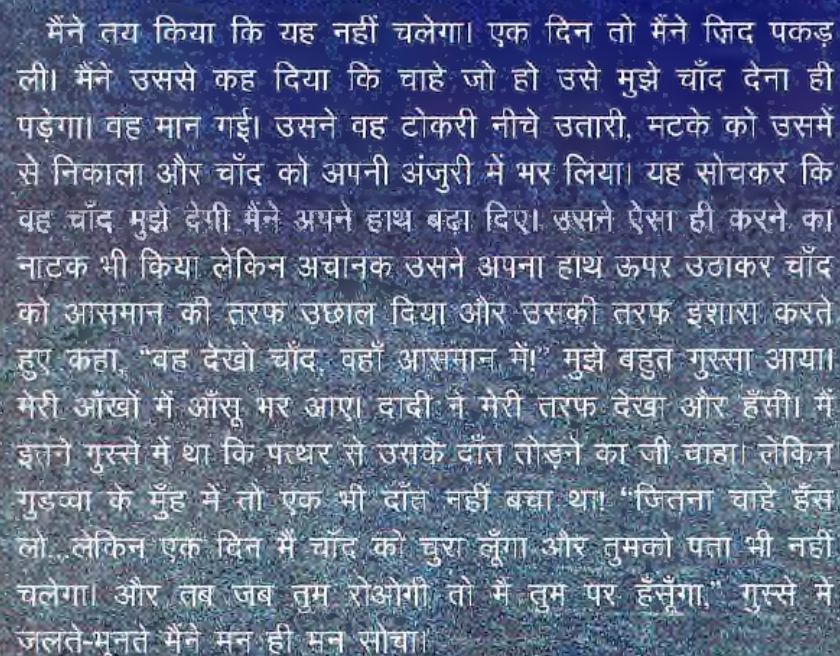 मैंने तय किया कि यह नहीं चलेगा। एक दिन तो मैंने ज़िद पकड़
ली। मैंने उससे कह दिया कि चाहे जो हो उसे मुझे चाँद देना ही
पड़ेगा। वह मान गई। उसने वह टोकरी नीचे उतारी, मटके को उसमें
से निकाला और चाँद को अपनी अंजुरी में भर लिया। यह सोचकर कि
वह चाँद मुझे देगी मैंने अपने हाथ बढ़ा दिए। उसने ऐसा ही करने का
नाटक भी किया लेकिन अचानक उसने अपना हाथ ऊपर उठाकर चाँद
को आसमान की तरफ उछाल दिया और उसकी तरफ इशारा करते
हुए कहा, “वह देखो चाँद, वहाँ आसमान में!” मुझे बहुत गुस्सा आया।
मेरी आँखों में आँसू भर आए। दादी ने मेरी तरफ देखा और हँसी। मैं
इतने गुस्से में था कि पत्थर से उसके दाँत तोड़ने का जी चाहा। लेकिन
गुडव्वा के मुँह में तो एक भी दाँत नहीं बचा था! “जितना चाहे हँस
लो...लेकिन एक दिन मैं चाँद को चुरा लूँगा और तुमको पता भी नहीं
चलेगा। और तब जब तुम रोओगी तो मैं तुम पर हँसूँगा,” गुस्से में
जलते-भुनते मैंने मन ही मन सोचा।